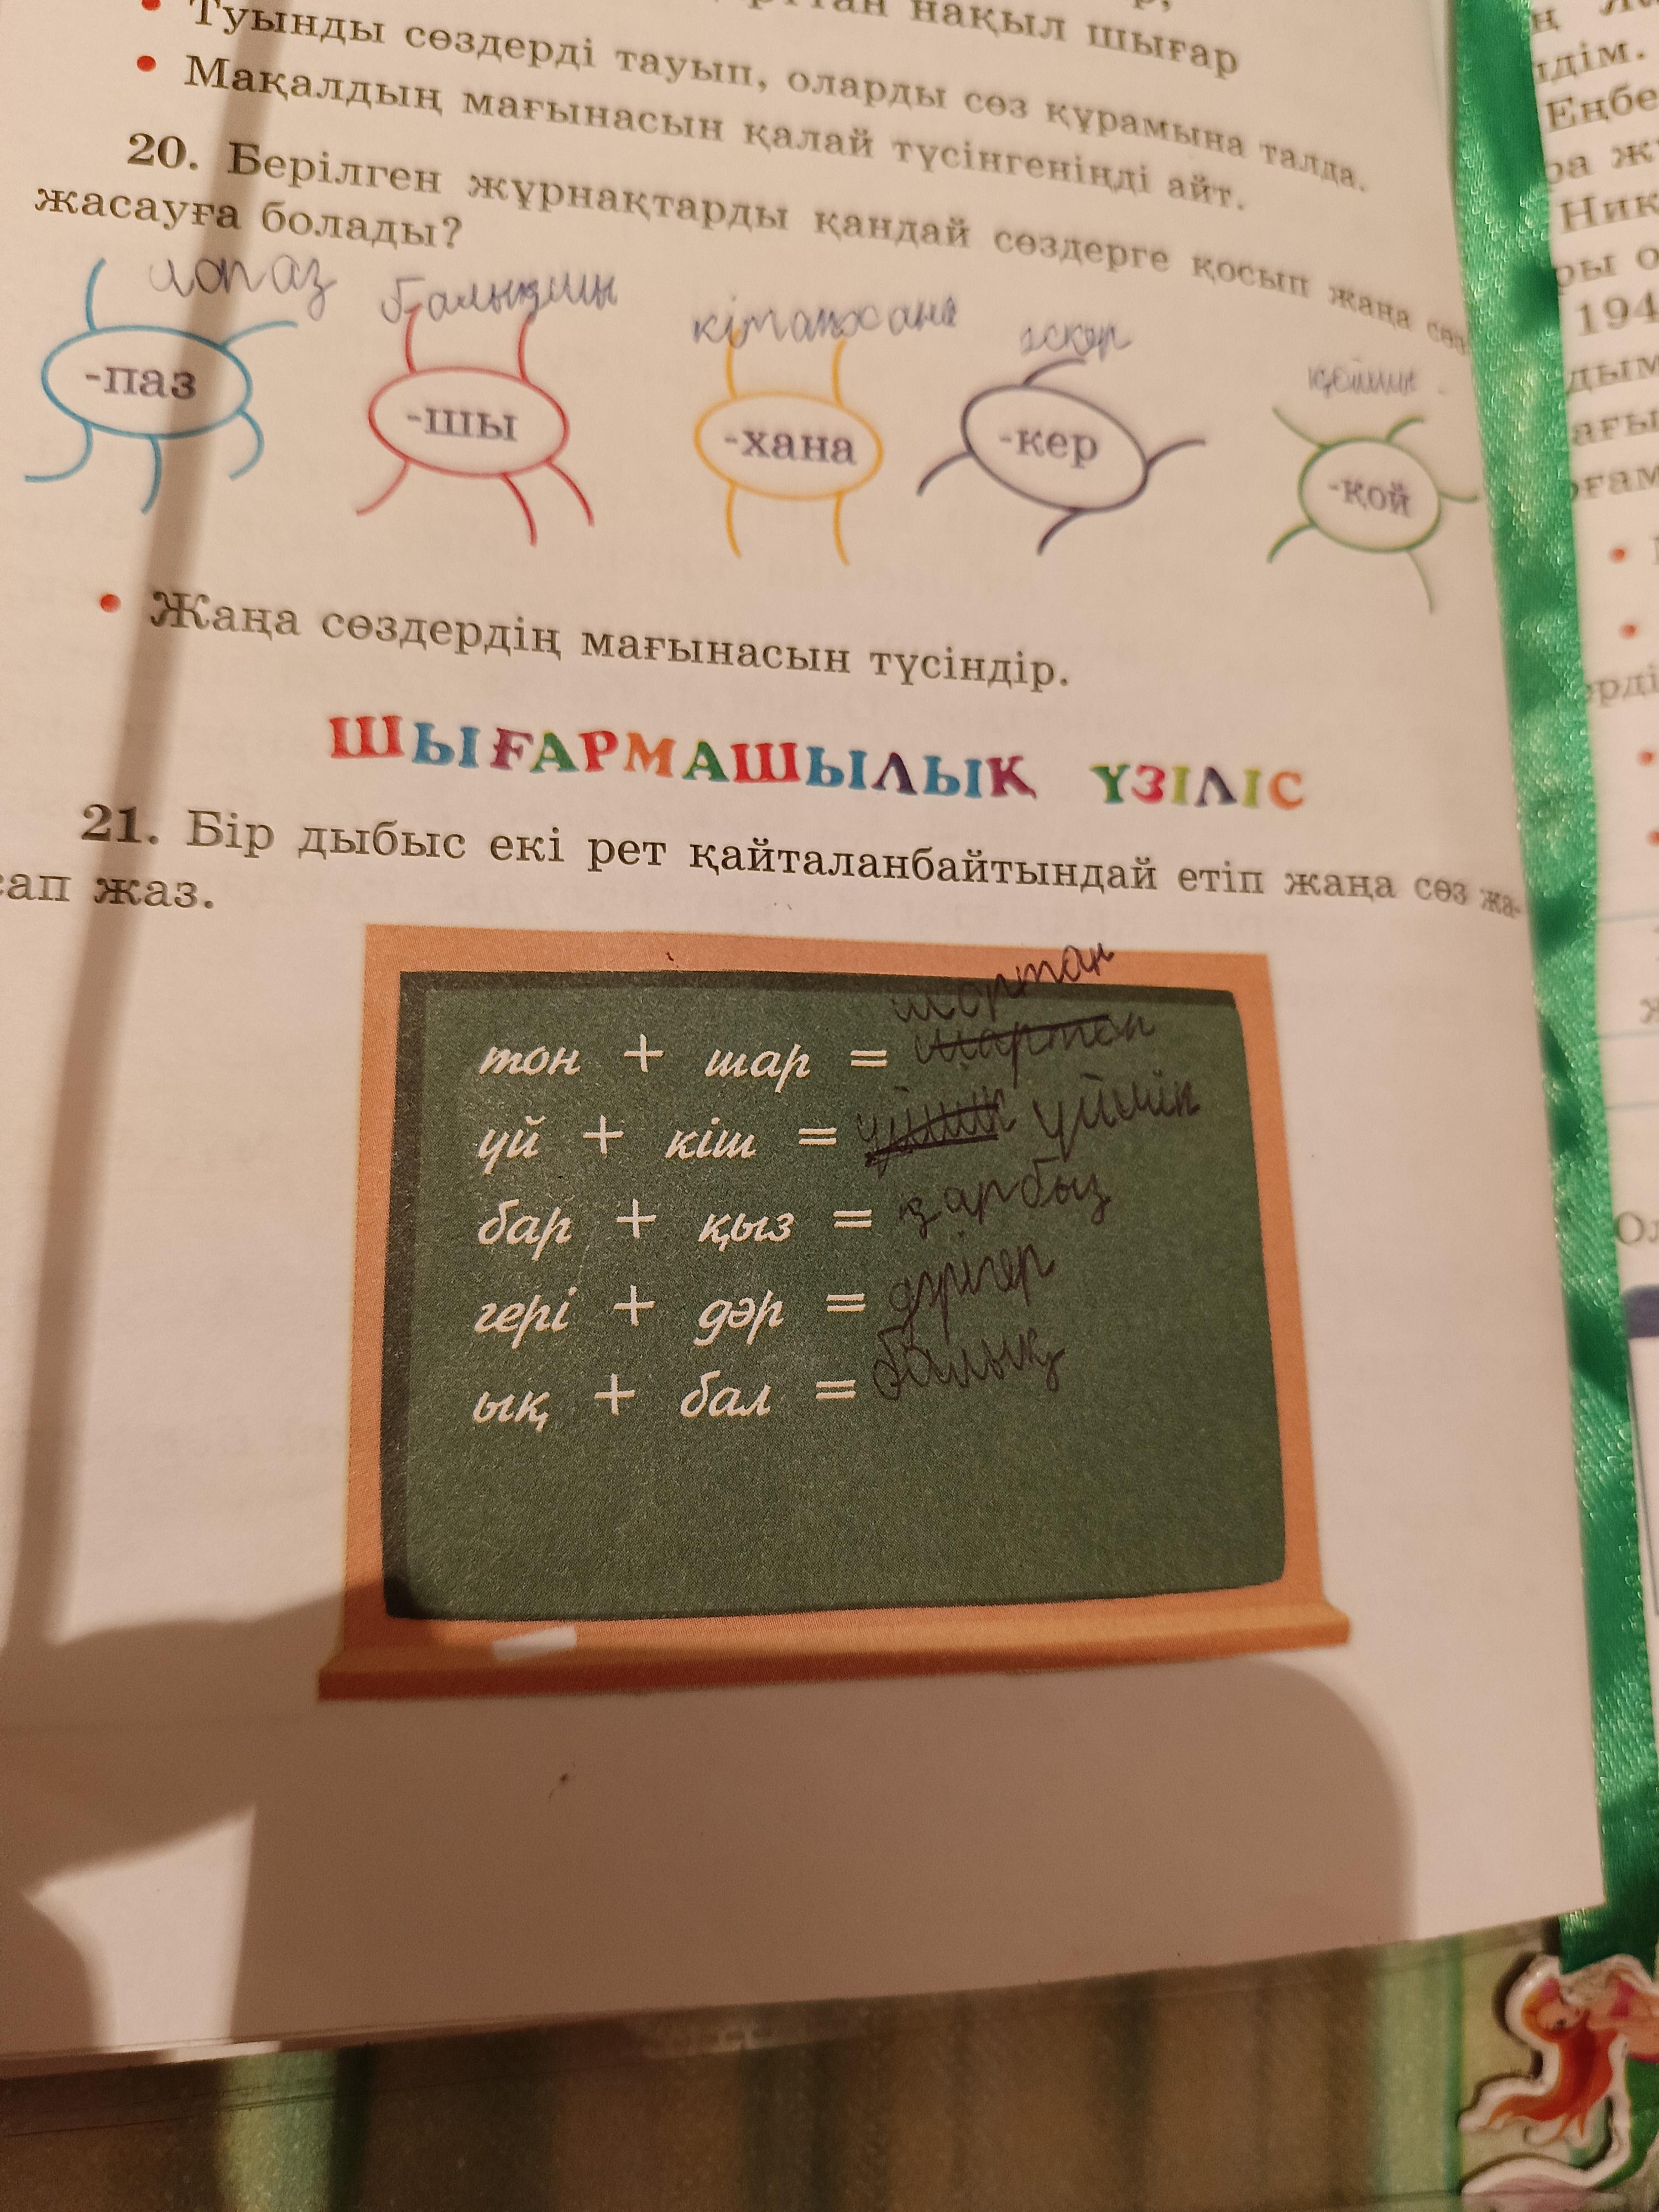 нақыл шығар
Туынды сөздерді тауып, оларды сөз құрамына талда.
Мақалдың мағынасын қалай түсінгеніңді айт.
20. Берілген жұрнақтарды қандай сөздерге қосып жаңа сөз
жасауға болады?
балықшы кітапхана әскер
-паз -шы -хана -кер -қой
Жаңа сөздердің мағынасын түсіндір.
ШЫҒАРМАШЫЛЫҚ ҮЗІЛІС
21. Бір дыбыс екі рет қайталанбайтындай етіп жаңа сөз жа-
сап жаз.
шортан
тон + шар = шартон
үй + кіш =
бар + қыз = қарбыз
гері + дәр = дәрігер
ық + бал = балық
ңдім.
Еңбе
ра ж
Ник
ры о
194
дым
ағы
ғам
рді
Ол